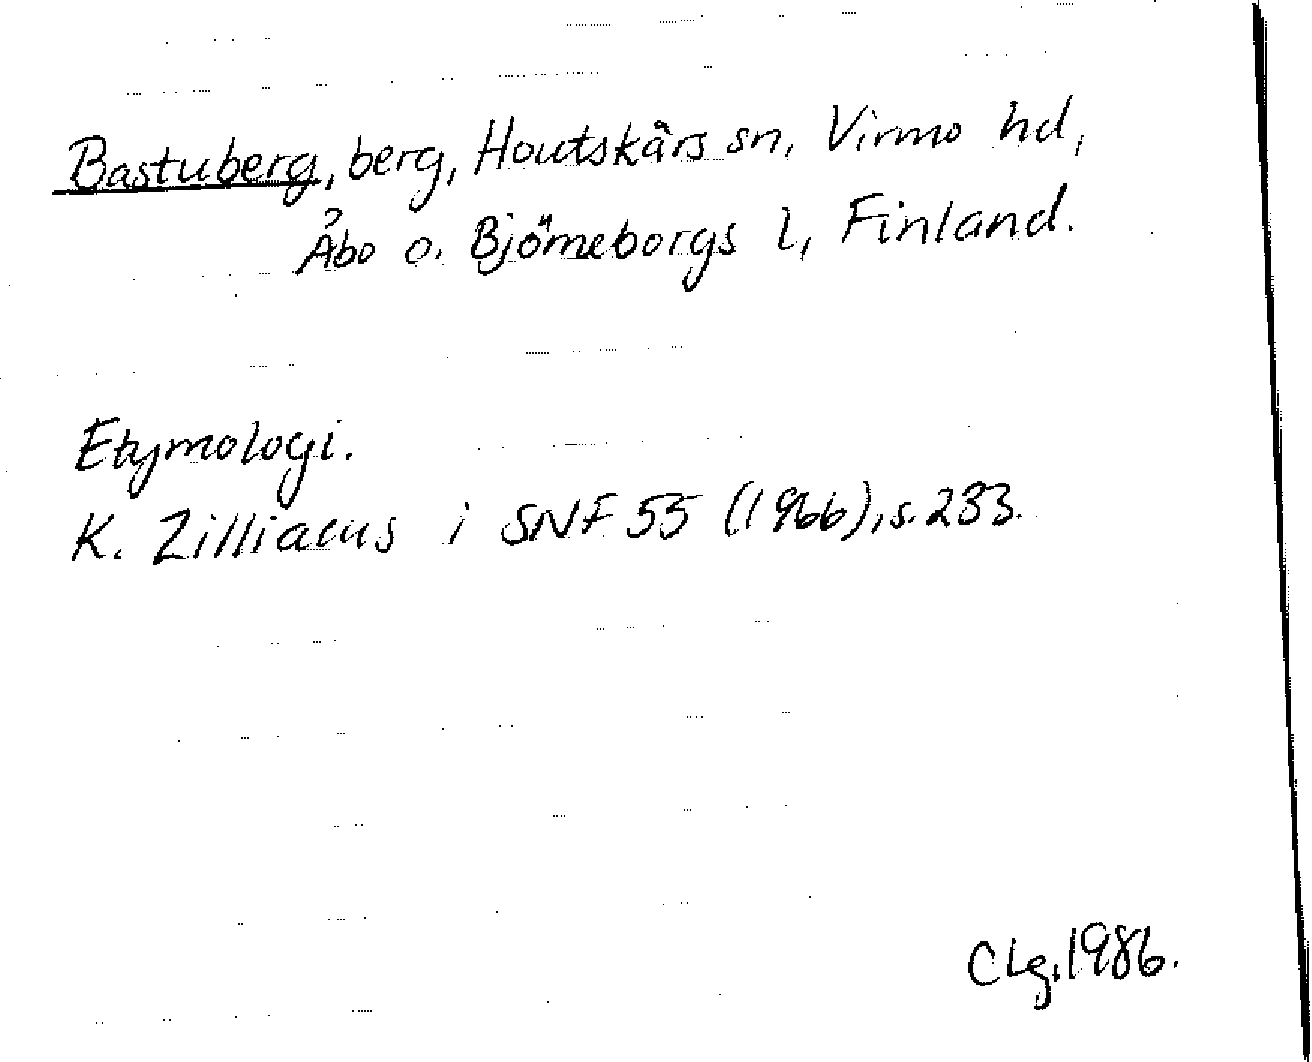 Bastuberg, berg, Houtskärs sn, Virmo hd,
Åbo o. Björneborgs l, Finland.
Etymologi.
K. Zilliacus i SNF 55 (1966), s. 233.
CLg. 1986.